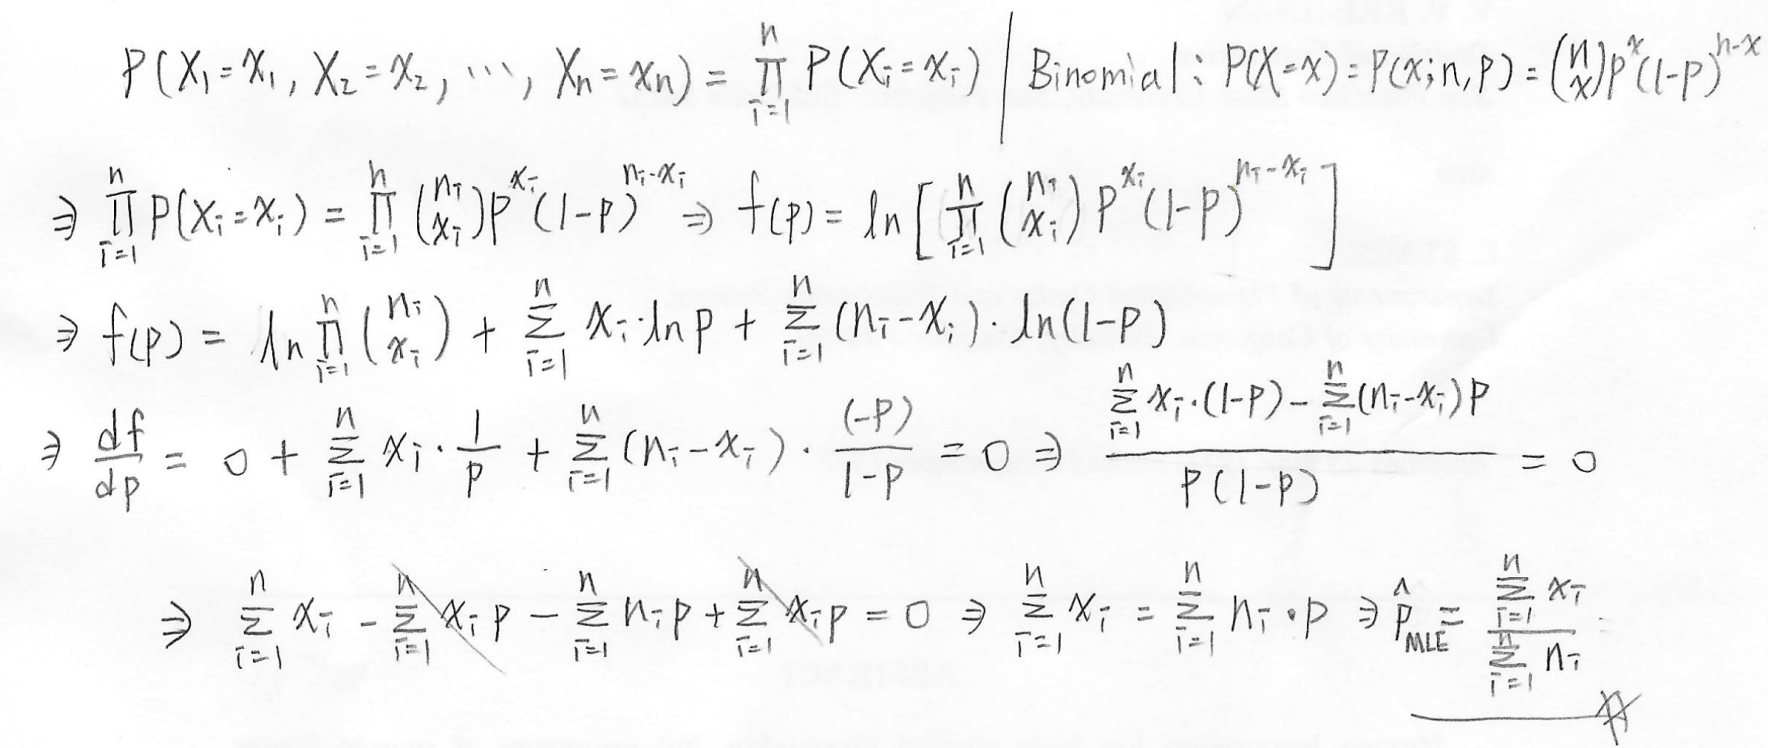 P(X₁=x₁, X₂=x₂, ⋯, Xₙ=xₙ) = ∏_{i=1}^{n} P(Xᵢ=xᵢ) | Binomial: P(X=x)=P(x;n,p)=(n x)p^x(1-p)^{n-x}
⇒ ∏_{i=1}^{n} P(Xᵢ=xᵢ) = ∏_{i=1}^{n} (nᵢ xᵢ)p^{xᵢ}(1-p)^{nᵢ-xᵢ} ⇒ f(p) = ln[∏_{i=1}^{n} (nᵢ xᵢ) p^{xᵢ}(1-p)^{nᵢ-xᵢ}]
⇒ f(p) = ln ∏_{i=1}^{n} (nᵢ xᵢ) + ∑_{i=1}^{n} xᵢ·ln p + ∑_{i=1}^{n} (nᵢ-xᵢ)·ln(1-p)
⇒ df/dp = 0 + ∑_{i=1}^{n} xᵢ · 1/p + ∑_{i=1}^{n} (nᵢ-xᵢ) · (-p)/(1-p) = 0 ⇒ [∑_{i=1}^{n} xᵢ·(1-p) - ∑_{i=1}^{n} (nᵢ-xᵢ)p] / [p(1-p)] = 0
⇒ ∑_{i=1}^{n} xᵢ - ∑_{i=1}^{n} xᵢp - ∑_{i=1}^{n} nᵢp + ∑_{i=1}^{n} xᵢp = 0 ⇒ ∑_{i=1}^{n} xᵢ = ∑_{i=1}^{n} nᵢ·p ⇒ p̂_{MLE} = ∑_{i=1}^{n} xᵢ / ∑_{i=1}^{n} nᵢ